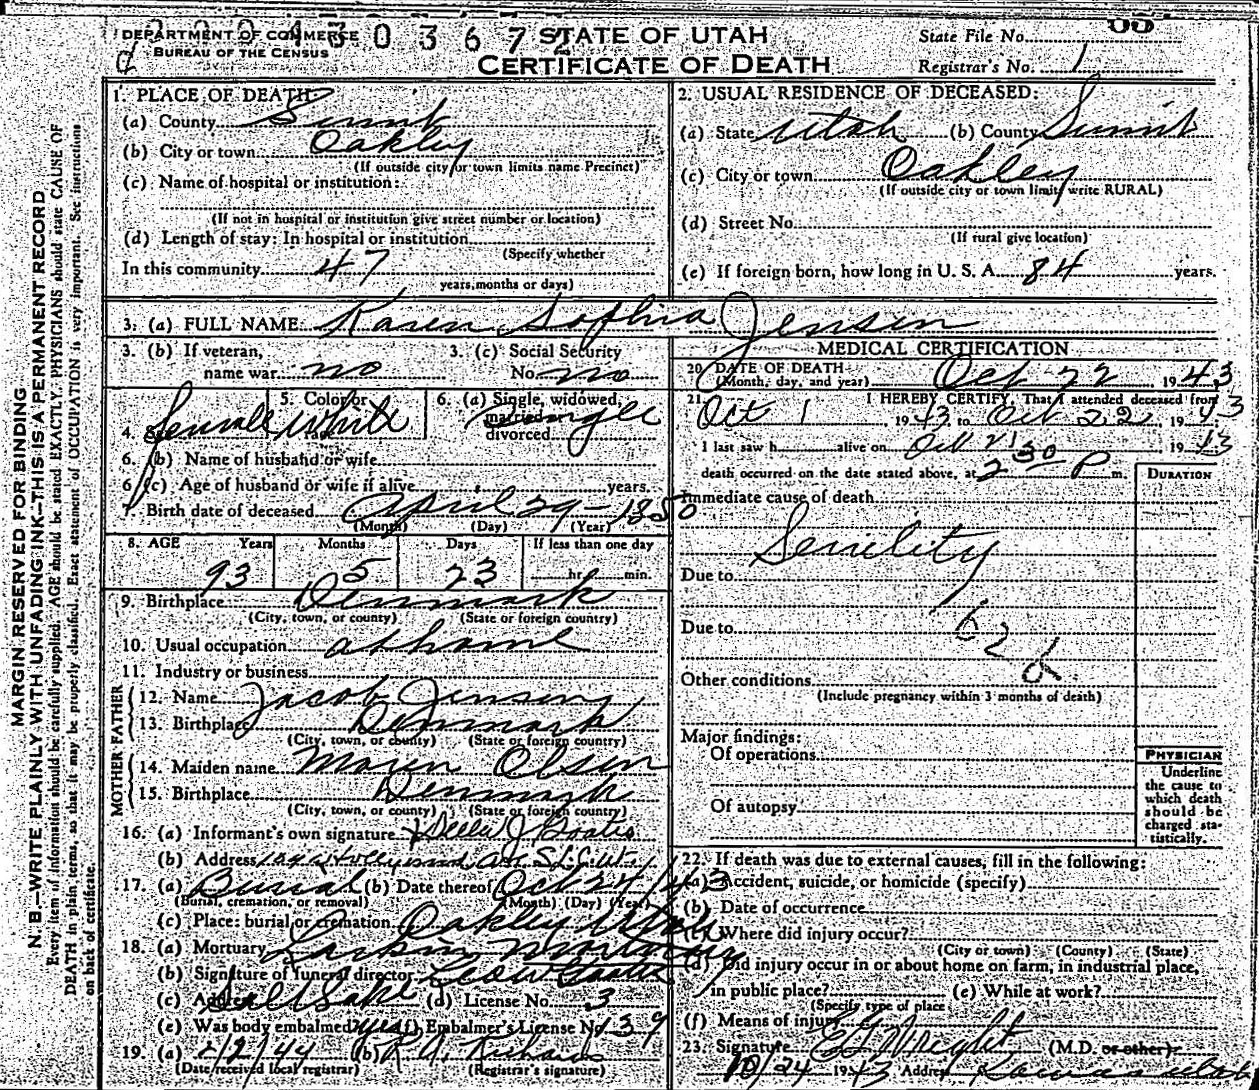 DEPARTMENT OF COMMERCE
BUREAU OF THE CENSUS
STATE OF UTAH
CERTIFICATE OF DEATH
State File No.
Registrar's No. 1
MARGIN RESERVED FOR BINDING
N. B.—WRITE PLAINLY WITH UNFADING INK—THIS IS A PERMANENT RECORD
Every item of information should be carefully supplied. AGE should be stated EXACTLY. PHYSICIANS should state CAUSE OF
DEATH in plain terms, so that it may be properly classified. Exact statement of OCCUPATION is very important. See instructions
on back of certificate.
1. PLACE OF DEATH
(a) County Summit
(b) City or town Oakley
(If outside city or town limits name Precinct)
(c) Name of hospital or institution:
(If not in hospital or institution give street number or location)
(d) Length of stay: In hospital or institution
(Specify whether
In this community 47
years, months or days)
2. USUAL RESIDENCE OF DECEASED:
(a) State Utah (b) County Summit
(c) City or town Oakley
(If outside city or town limits write RURAL)
(d) Street No.
(If rural give location)
(e) If foreign born, how long in U. S. A. 84 years.
3. (a) FULL NAME Karen Sophia Jensen
3. (b) If veteran,
name war no
3. (c) Social Security
No. no
4. Female
5. Color or
race White
6. (a) Single, widowed,
married,
divorced Single
6. (b) Name of husband or wife
6. (c) Age of husband or wife if alive years.
7. Birth date of deceased April 29 - 1850
(Month) (Day) (Year)
8. AGE Years Months Days If less than one day
93 5 23 hr. min.
9. Birthplace Denmark
(City, town, or county) (State or foreign country)
10. Usual occupation at home
11. Industry or business
FATHER
12. Name Jacob Jensen
13. Birthplace Denmark
(City, town, or county) (State or foreign country)
MOTHER
14. Maiden name Maren Olsen
15. Birthplace Denmark
(City, town, or county) (State or foreign country)
16. (a) Informant's own signature
(b) Address Hollywood Ave S.L.C. Ut.
17. (a) Burial (b) Date thereof Oct 24/43
(Burial, cremation, or removal) (Month) (Day) (Year)
(c) Place: burial or cremation Oakley Utah
18. (a) Mortuary Larkin Mortuary
(b) Signature of funeral director
(c) Address Salt Lake (d) License No. 3
(e) Was body embalmed? yes (f) Embalmer's License No. 139
19. (a) 2/2/44 (b)
(Date received local registrar) (Registrar's signature)
MEDICAL CERTIFICATION
20. DATE OF DEATH
(Month, day, and year) Oct 22 1943
21. I HEREBY CERTIFY, That I attended deceased from
Oct 1, 1943 to Oct 22, 1943
I last saw h alive on Oct 21 1943
death occurred on the date stated above, at 2 30 P m.
DURATION
Immediate cause of death
Senility
Due to
Due to
Other conditions
(Include pregnancy within 3 months of death)
Major findings:
Of operations
Of autopsy
PHYSICIAN
Underline
the cause to
which death
should be
charged sta-
tistically.
22. If death was due to external causes, fill in the following:
(a) Accident, suicide, or homicide (specify)
(b) Date of occurrence
(c) Where did injury occur?
(City or town) (County) (State)
(d) Did injury occur in or about home on farm, in industrial place,
in public place? (e) While at work?
(Specify type of place
(f) Means of injury
23. Signature Wright (M.D. or other)
10/24 1943 Address Kamas Utah